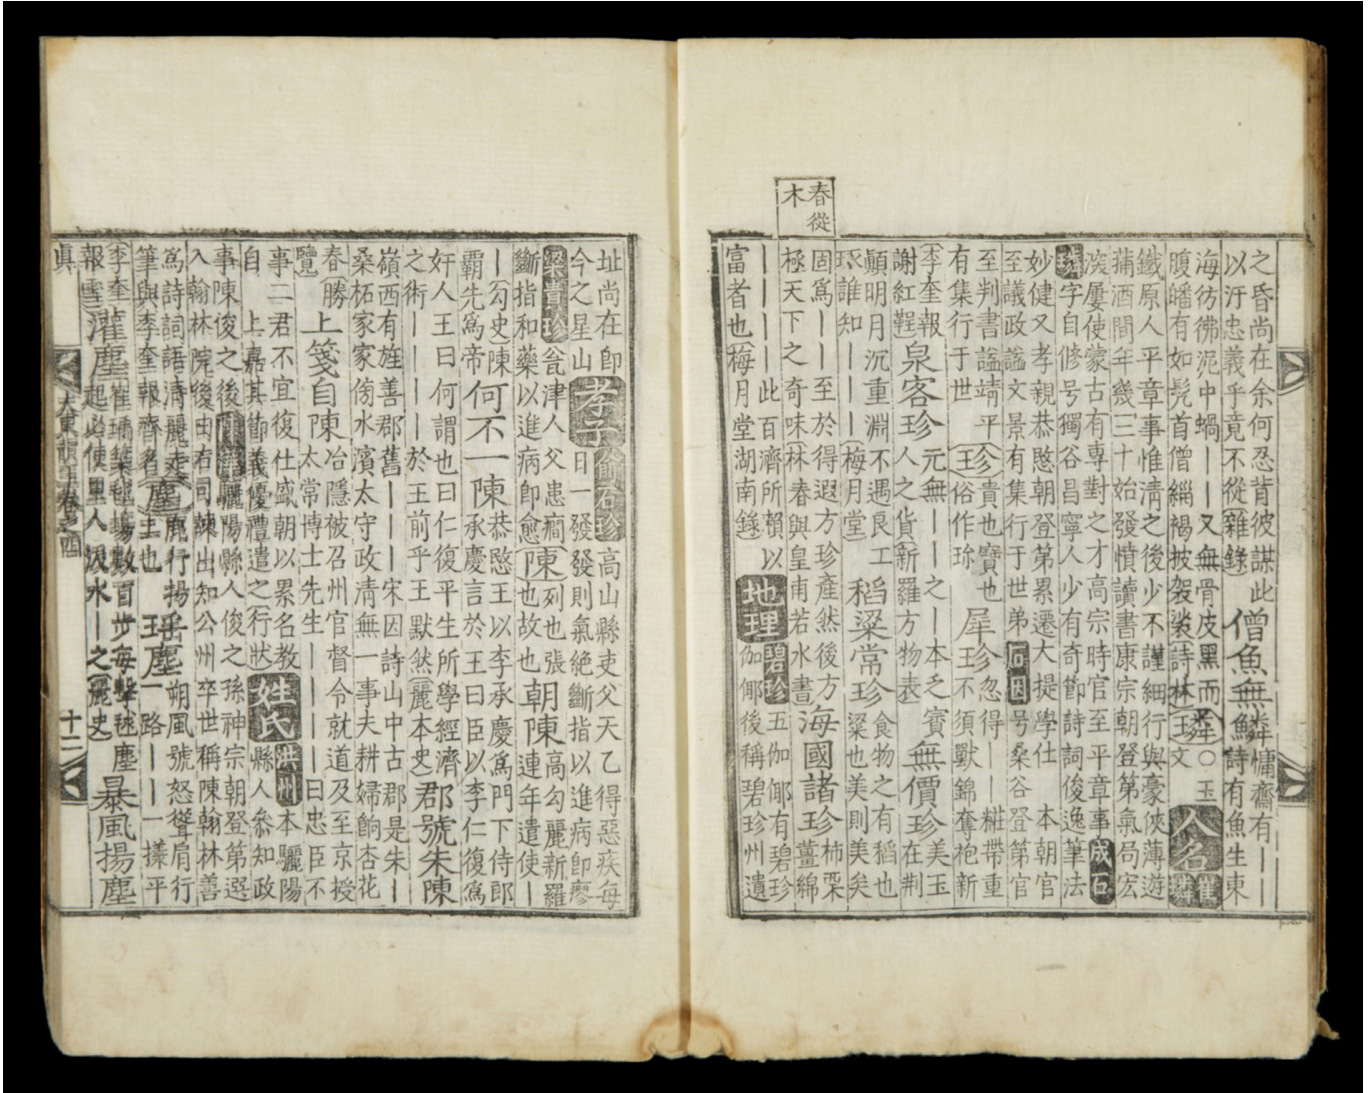 春從
木
之昏尚在余何忍背彼謀此
以汙忠義乎竟不從(雜錄)僧魚無鱗慵齋有丨
詩有魚生東
海彷彿泥中蝸丨丨又無骨皮黑而
腹皤有如髡首僧緇褐披袈裟(詩林)○玉
文人名崔璘
鐵原人平章事惟清之後少不謹細行與豪俠薄遊
蒲酒間年幾三十始發憤讀書康宗朝登第氣局宏
深屢使蒙古有專對之才高宗時官至平章事成石
璘字自修号獨谷昌寧人少有奇節詩詞俊逸筆法
妙健又孝親恭愍朝登第累遷大提學仕 本朝官
至議政諡文景有集行于世弟石因号桑谷登第官
至判書諡靖平
有集行于世珍貴也寶也
玉俗作珎犀珍忽得丨丨糚帶重
玉不須獸錦奪袍新
(李奎報
謝紅鞓)泉客珍元無丨丨之丨本乏寶
人之貨(新羅方物表)無價珍美玉
在荆
顚明月沉重淵不遇良工
琢誰知丨丨丨(梅月堂)稻粱常珍食物之有稻也
粱也美則美矣
固爲丨丨至於得遐方珍產然後方
極天下之奇味(林春與皇甫若水書)海國諸珍柿栗
薑綿
丨丨丨丨此百濟所賴以
富者也(梅月堂湖南錄)地理碧珍五伽倻有碧珍
伽倻後稱碧珍州遺
址尚在卽
今之星山孝子飾石珍高山縣吏父天乙得惡疾每
日一發發則氣絕斷指以進病卽廖
梁貴珍瓮津人父患癎
斷指和藥以進病卽愈陳列也張
也故也朝陳高勾麗新羅
連年遣使丨
丨(勾史)陳
霸先爲帝何不一陳恭愍王以李承慶爲門下侍郎
承慶言於王曰臣以李仁復爲
奸人王曰何謂也曰仁復平生所學經濟
之術丨丨丨丨於王前乎王默然(麗本史)郡號朱陳
嶺西有旌善郡舊丨丨丨宋因詩山中古郡是朱丨
桑柘家家傍水濱太守政清無一事夫耕婦餉杏花
春(勝
覽)上箋自陳冶隱被召州官督令就道及至京授
太常博士先生丨丨丨丨曰忠臣不
事二君不宜復仕盛朝以累名教
自 上嘉其節義優禮遣之(行狀)姓氏洪州本驪陽
縣人叅知政
事陳俊之後陳澕驪陽縣人俊之孫神宗朝登第選
入翰林院後由右司諫出知公州卒世稱陳翰林善
爲詩詞語清麗走
筆與李奎報齊名塵鹿行揚
土也瑤塵朔風號怒聳肩行
一路丨丨一㨾平
(李奎
報雪)灌塵崔瑀築毬場數百步每擊毬塵
起必使里人汲水丨之(麗史)暴風揚塵
眞 大東韻玉卷之四 十二